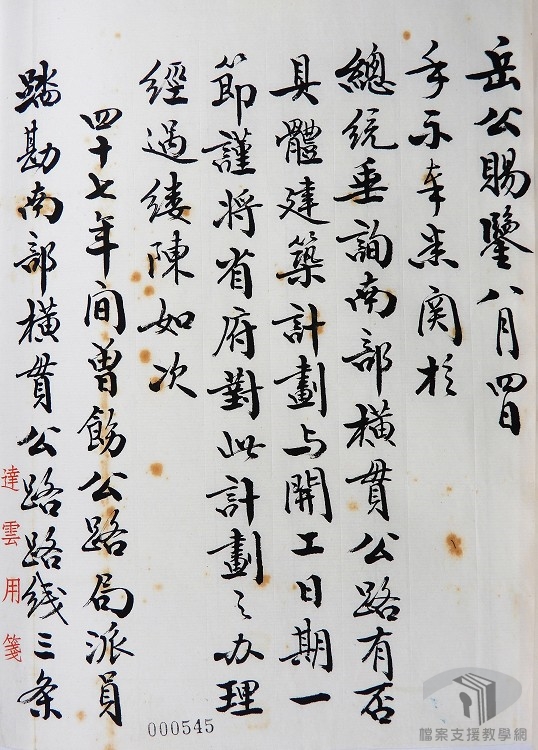 岳公賜鑒八月四日
手示奉悉関於
總統垂詢南部橫貫公路有否
具體建築計劃与開工日期一
節謹將省府對此計劃之办理
經過縷陳如次
四十七年间曾飭公路局派員
踏勘南部橫貫公路路线三条
達雲用箋
000545
檔案支援教學網